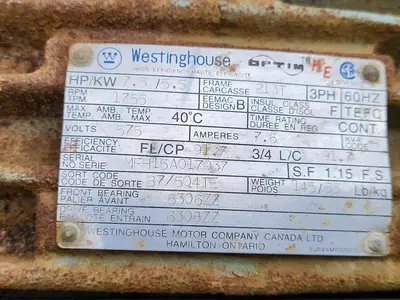 Westinghouse OPTIM HE
HIGH EFFICIENCY/HAUTE EFFICACITÉ
HP/KW 7.5 /5.5 FRAME CARCASSE 213T 3PH 60HZ
RPM TPM 1755 EEMAC DESIGN B INSUL CLASS CLASSE D'ISOL F TEFC
MAX AMB TEMP TEMP. AMB. MAX 40°C TIME RATING DURÉE EN RÉG CONT
VOLTS 575 AMPERES 7.6
EFFICIENCY EFFICACITÉ FL/CP 91.7 3/4 L/C 91.7
SERIAL NO.SÉRIE S.F 1.15 F.S
SORT CODE CODE DE SORTE WEIGHT POIDS 145/65 Lb/kg
FRONT BEARING PALIER AVANT 6306ZZ
DRIVE BEARING PALIER ENTRAIN 6308ZZ
WESTINGHOUSE MOTOR COMPANY CANADA LTD
HAMILTON ONTARIO